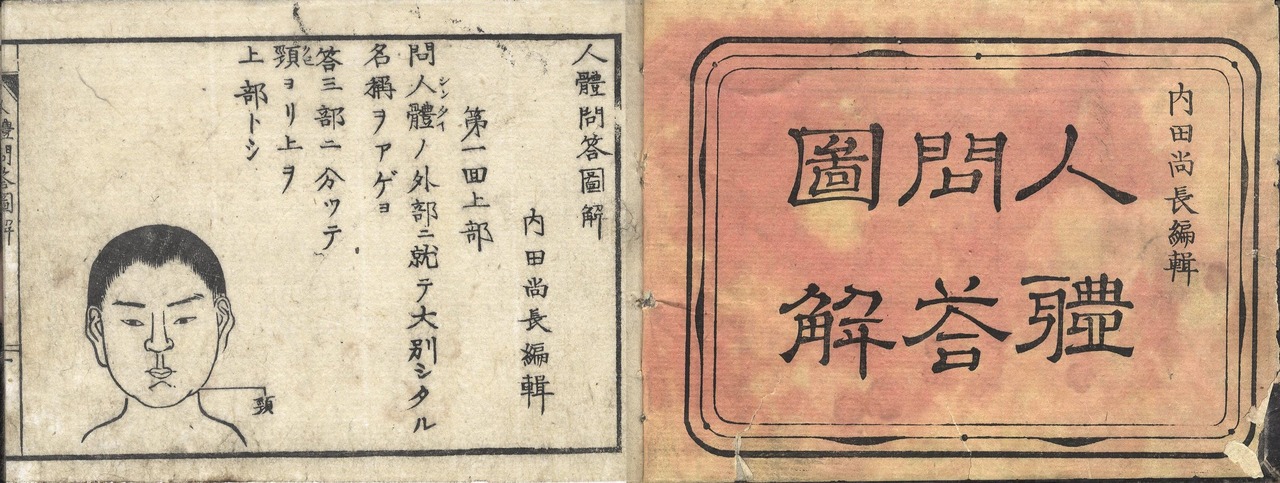 内田尚長編輯
人體
問答
圖解
人體問答圖解
内田尚長編輯
第一回上部
問人體ノ外部ニ就テ大別シタル
シンタイ
名稱ヲアゲヨ
答三部ニ分ツテ
頸ヨリ上ヲ
上部トシ
頸
人體問答圖解